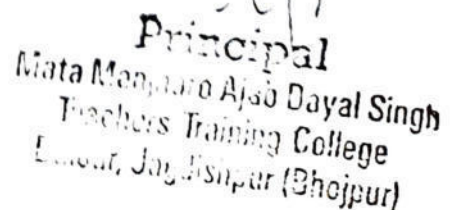 Principal
Mata Ajab Dayal Singh
Teachers Training College
Jagdishpur (Bhojpur)